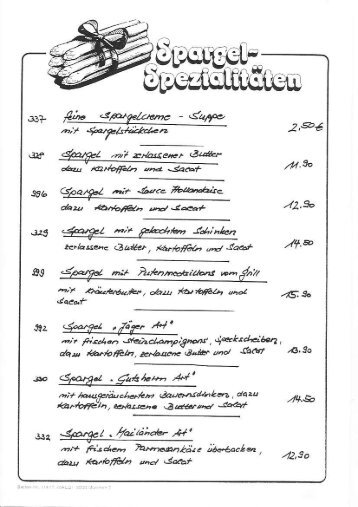 Spargel-
Spezialitäten
337 feine Spargelcreme - Suppe
mit Spargelstückchen 2,50€
328 Spargel mit zerlassener Butter
dazu Kartoffeln und Salat 11.90
996 Spargel mit Sauce Hollandaise
dazu Kartoffeln und Salat 12,90
329 Spargel mit gekochtem Schinken
zerlassene Butter, Kartoffeln und Salat 14.50
999 Spargel mit Putenmedaillons vom Grill
mit Kräuterbutter, dazu Kartoffeln und
Salat 15.90
992 Spargel „Jäger Art"
mit frischen Steinchampignons, Speckscheiben,
dazu Kartoffeln, zerlassene Butter und Salat 13.90
330 Spargel „Gutsherrn Art"
mit hausgeräuchertem Bauernschinken, dazu
Kartoffeln, zerlassene Butter und Salat 14.50
332 Spargel „Mailänder Art"
mit frischem Parmesankäse überbacken,
dazu Kartoffeln und Salat 12,90